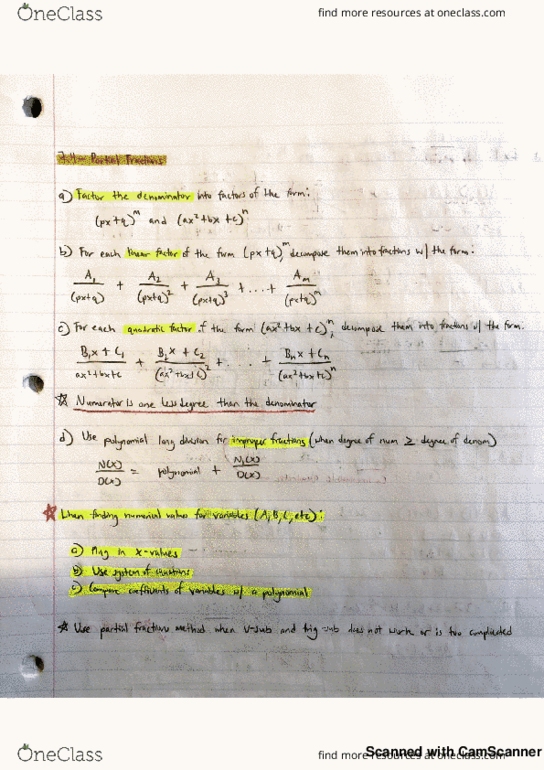 OneClass
find more resources at oneclass.com
7.4 - Partial Fractions
a) Factor the denominator into factors of the form:
(px+q)^m and (ax²+bx+c)^n
b) For each linear factor of the form (px+q)^m, decompose them into fractions w/ the form:
A₁/(px+q) + A₂/(px+q)² + A₃/(px+q)³ + ... + Aₘ/(px+q)^m
c) For each quadratic factor of the form (ax²+bx+c)^n, decompose them into fractions w/ the form.
B₁x+C₁/ax²+bx+c + B₂x+C₂/(ax²+bx+c)² + ... + Bₙx+Cₙ/(ax²+bx+c)^n
☆ Numerator is one less degree than the denominator
d) Use polynomial long division for improper fractions (when degree of num ≥ degree of denom)
N(x)/D(x) = polynomial + N₁(x)/D(x)
☆ When finding numerical value for variables (A, B, C, etc):
a) Plug in x-values
b) Use system of equations
c) Compare coefficients of variables w/ a polynomial
☆ Use partial fractions method when u-sub and trig-sub does not work or is too complicated
OneClass
find more resources at oneclass.com
Scanned with CamScanner